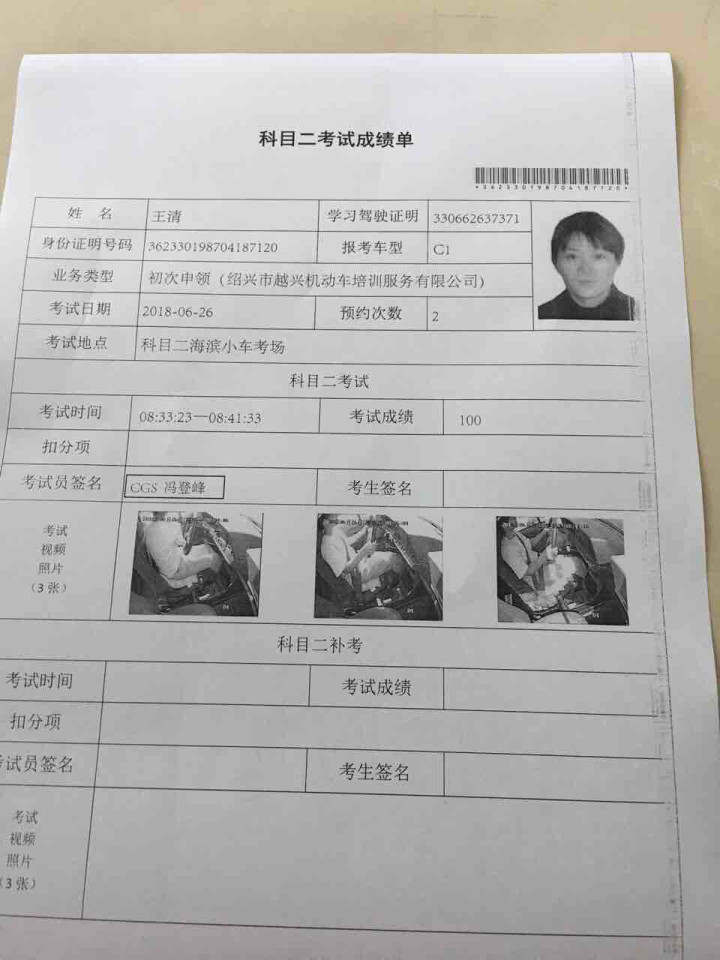 科目二考试成绩单
*362330198704187120*
姓 名 王清 学习驾驶证明 330662637371
身份证明号码 362330198704187120 报考车型 C1
业务类型 初次申领（绍兴市越兴机动车培训服务有限公司）
考试日期 2018-06-26 预约次数 2
考试地点 科目二海滨小车考场
科目二考试
考试时间 08:33:23—08:41:33 考试成绩 100
扣分项
考试员签名 CGS 冯登峰 考生签名
考试
视频
照片
（3 张）
04
04
04
科目二补考
考试时间 考试成绩
扣分项
考试员签名 考生签名
考试
视频
照片
（3 张）